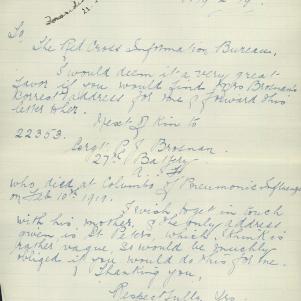 To
The Red Cross Information Bureau,
I would deem it a very great
favor if you would find Mrs Brosnan's
correct address for me & forward this
letter to her.
Next of Kin to
22353.
Sergt. Brosnan.
27th Battery
who died at Columbo of Pneumonic Influenza
on Feb 10th 1919.
I wish to get in touch
with his mother, & the only address
given is St Peters, which I think is
rather vague, so would be muchly
obliged if you would do this for me.
Thanking you,
Respectfully Yrs